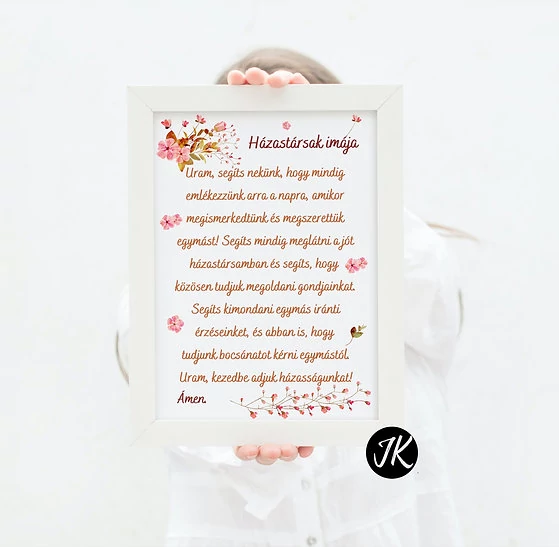 Házastársak imája
Uram, segíts nekünk, hogy mindig
emlékezzünk arra a napra, amikor
megismerkedtünk és megszerettük
egymást! Segíts mindig meglátni a jót
házastársamban és segíts, hogy
közösen tudjuk megoldani gondjainkat.
Segíts kimondani egymás iránti
érzéseinket, és abban is, hogy
tudjunk bocsánatot kérni egymástól.
Uram, kezedbe adjuk házasságunkat!
Ámen.
JK